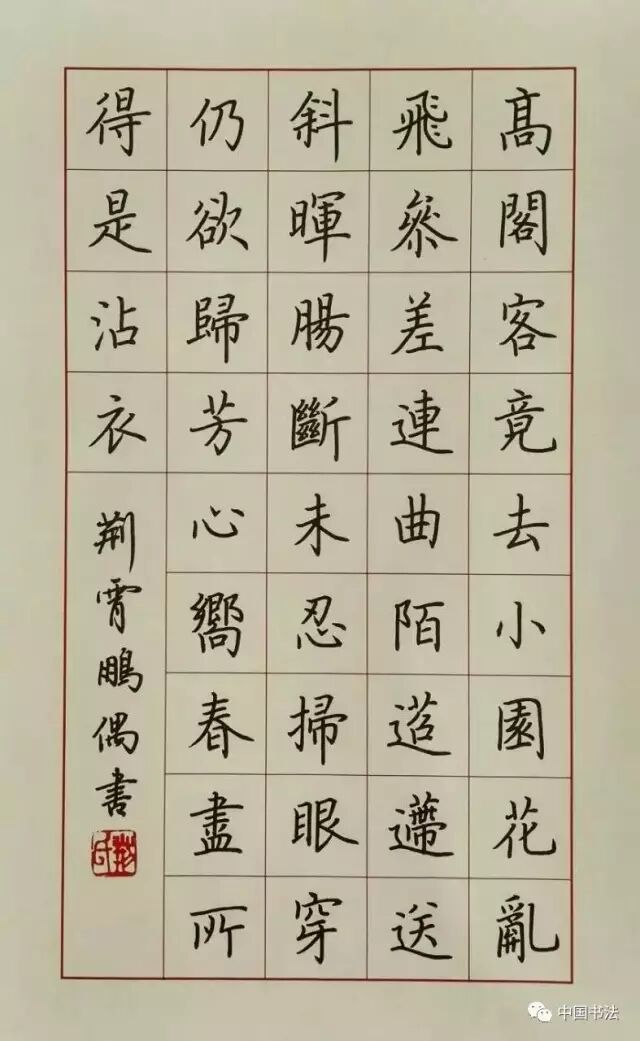 高閣客竟去小園花亂
飛叅差連曲陌迢遰送
斜暉腸斷未忍掃眼穿
仍欲歸芳心嚮春盡所
得是沾衣
荆霄鵬偶書
中国书法